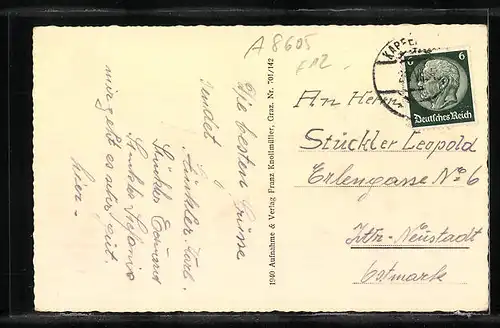 A 8605
£12.
Die besten Grüsse
sendet
Stückler Karl.
Stückler Eduard
Stückler Stefanie
mir geht es sehr gut
hier.
1940 Aufnahme & Verlag Franz Knollmüller, Graz. Nr. 701/142
KAPFE
6 6
Deutsches Reich
An Herrn
Stückler Leopold
Erlengasse No 6
Wr. Neustadt
Ostmark